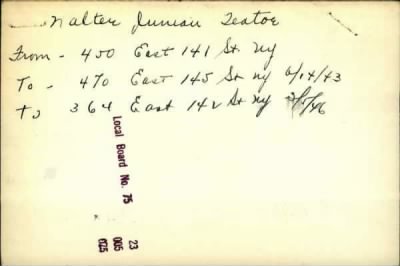 Walter Junian Teator
From - 450 East 141 St NY
To - 470 East 145 St NY 6/14/43
To 364 East 142 St NY 2/5/46
Local Board No. 75
23
005
025